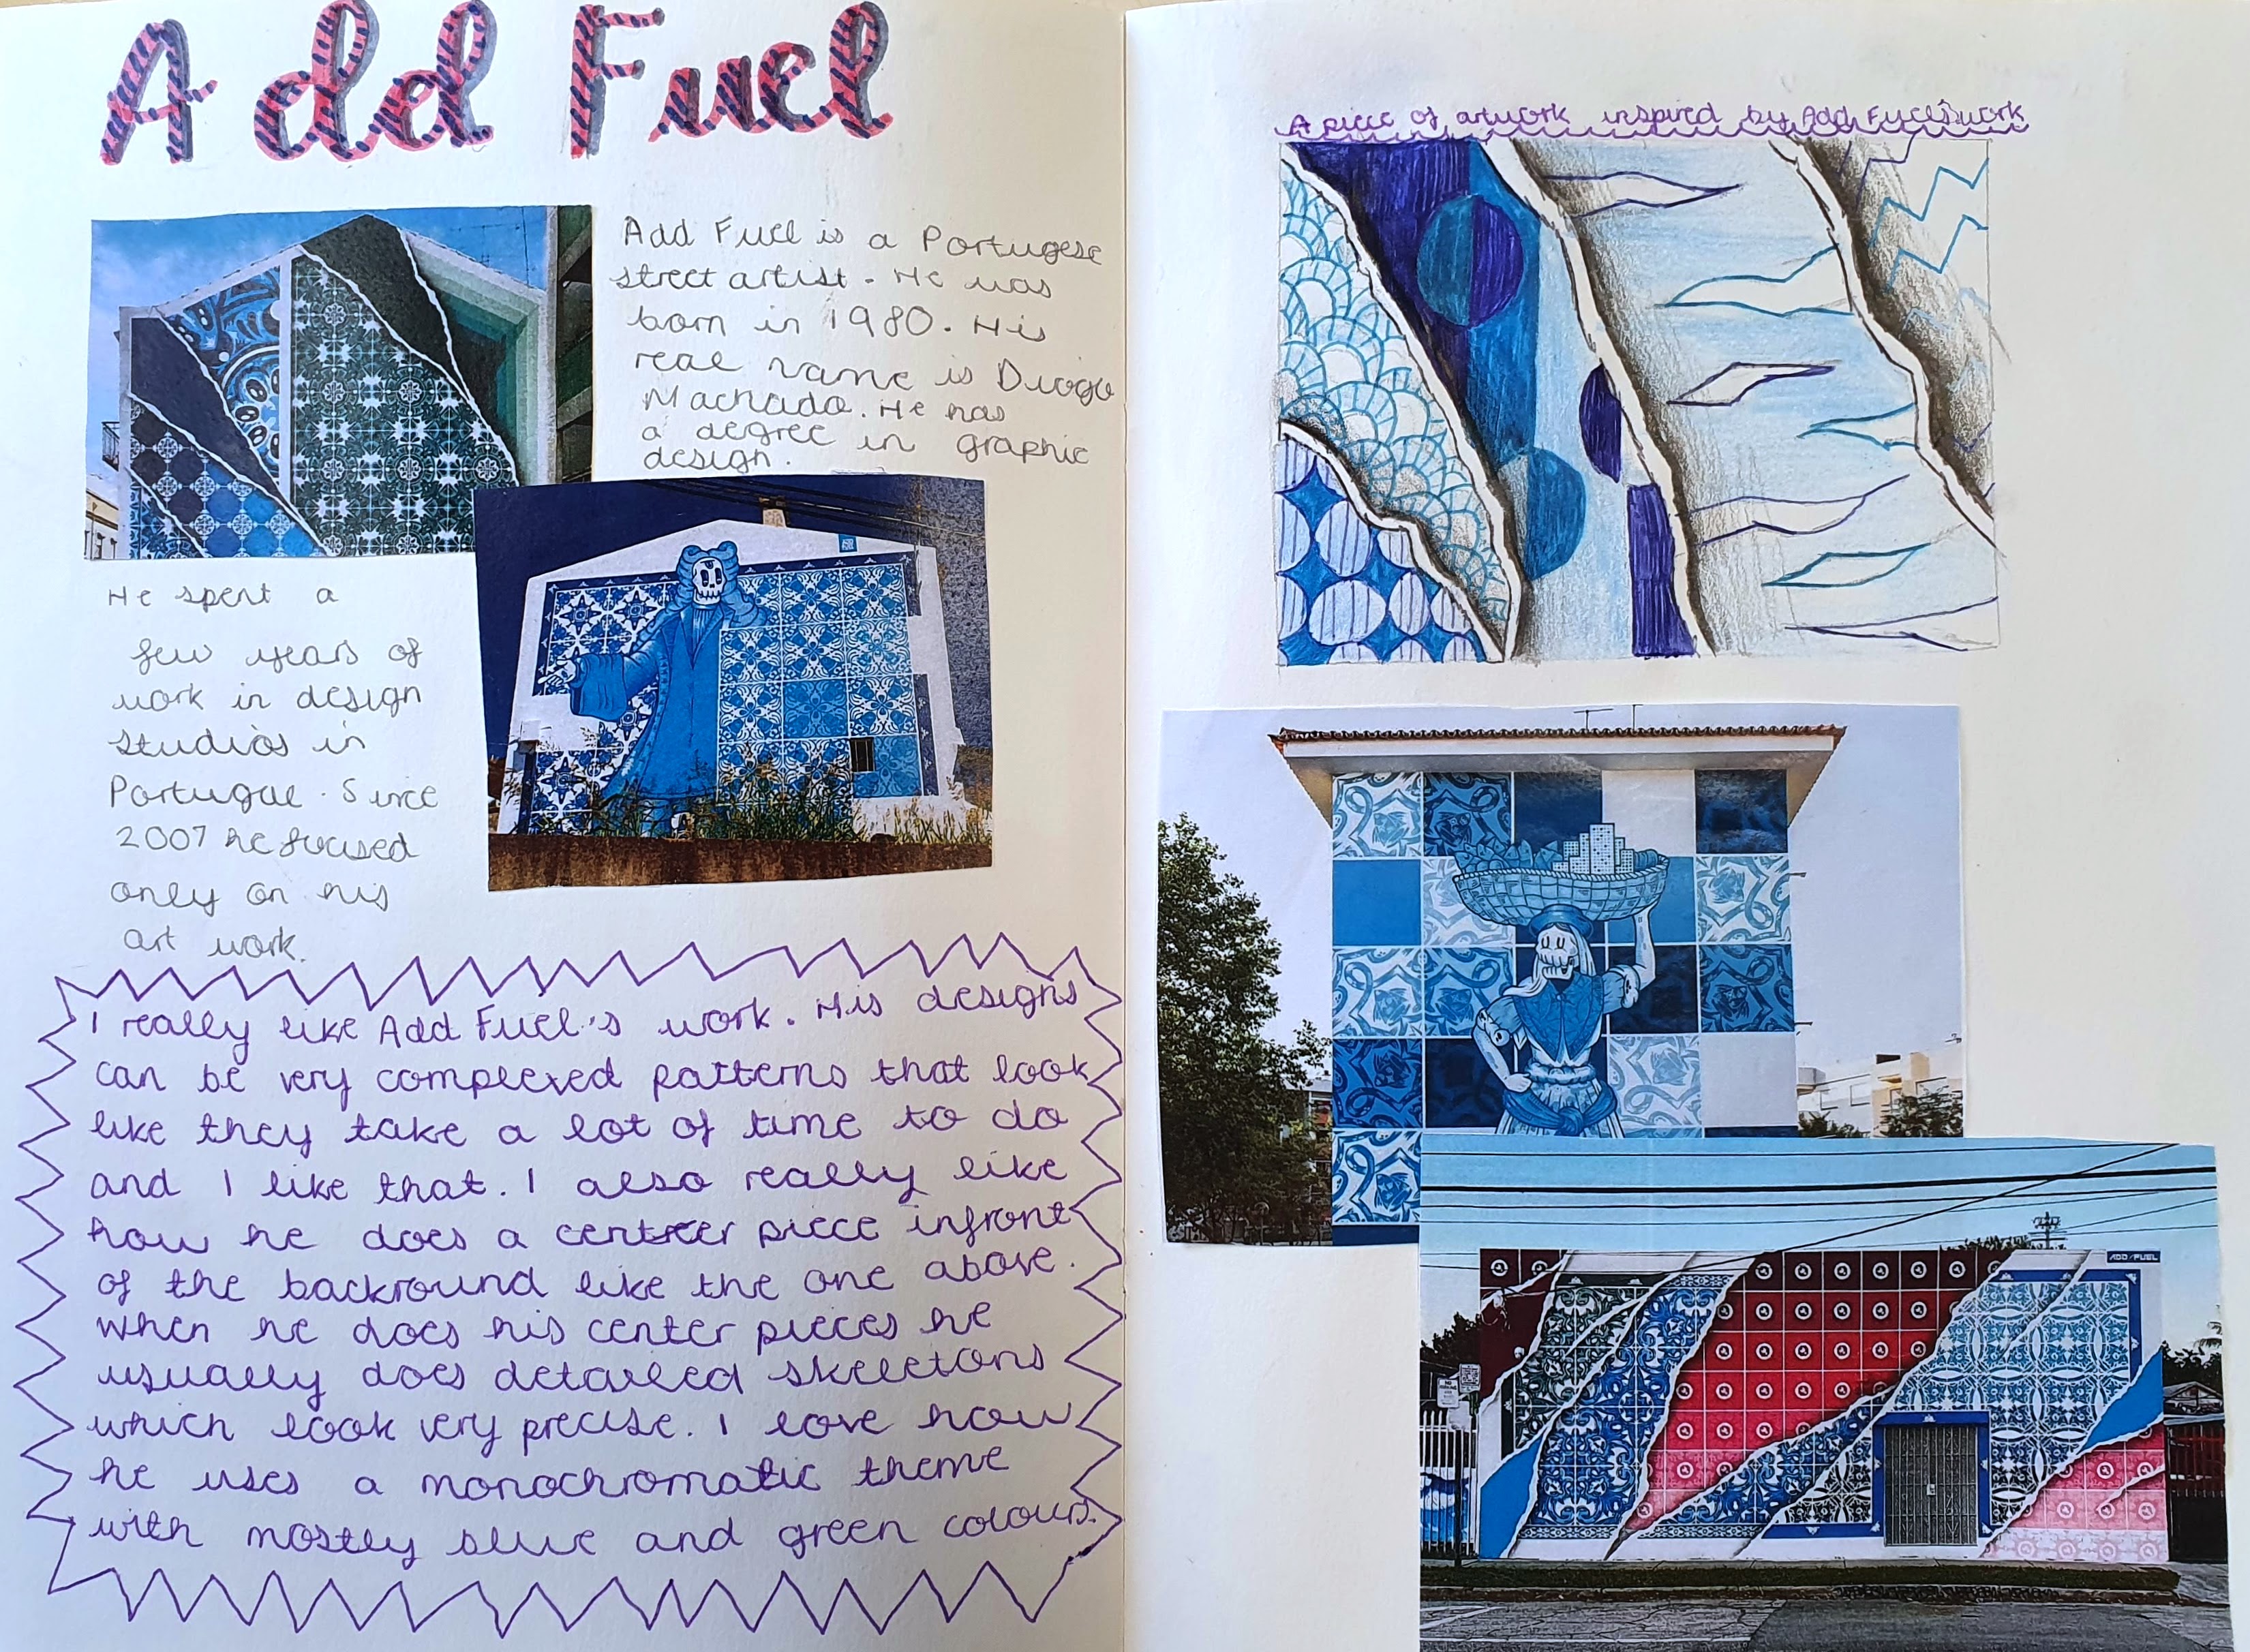 Add Fuel
Add Fuel is a Portugese
street artist. He was
born in 1980. His
real name is Diogo
Machado. He has
a degree in graphic
design.
He spent a
few years of
work in design
studios in
Portugal. Since
2007 he focused
only on his
art work.
I really like Add Fuel's work. His designs
can be very complexed patterns that look
like they take a lot of time to do
and I like that. I also really like
how he does a centreer piece infront
of the backround like the one above.
when he does his center pieces he
usually does detailed skeletons
which look very precise. I love how
he uses a monochromatic theme
with mostly blue and green colours.
A piece of artwork inspired by Add Fuel's work
ADD FUEL
NO
PARKING